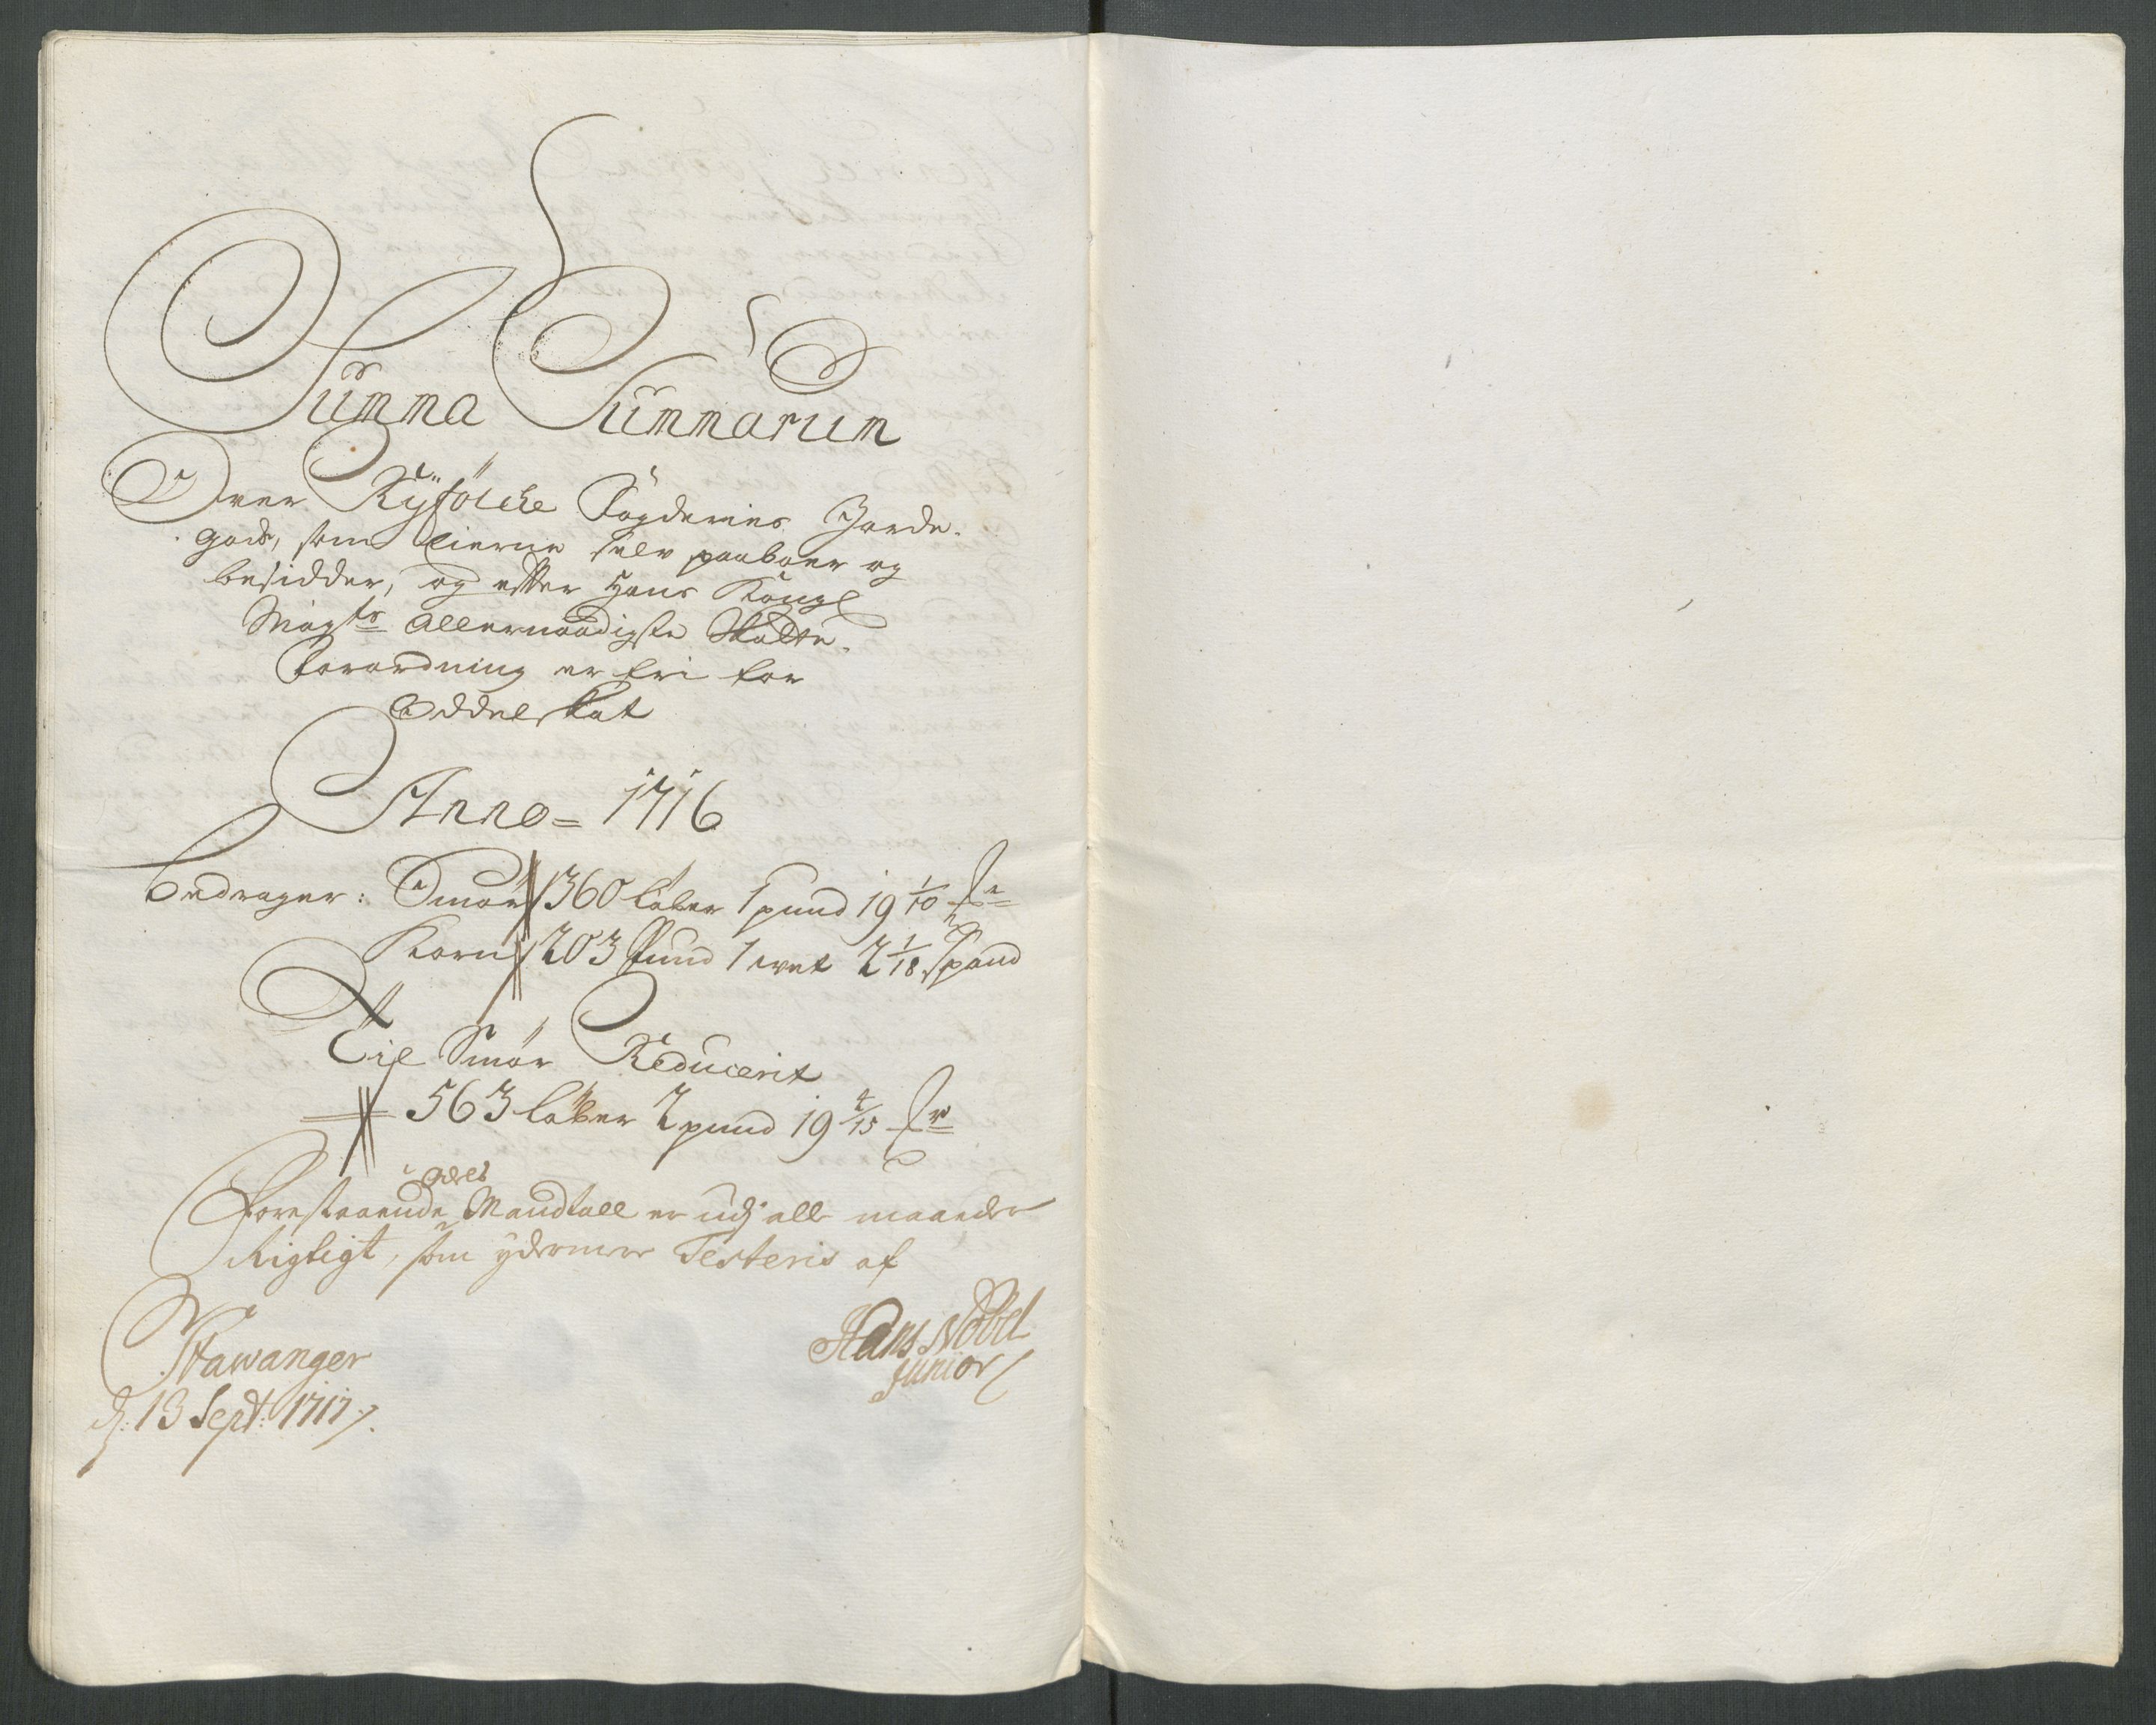 Summa Summarum
Over Ryfölcke Fogderies Jorde-
gods, som Eierne selv paaboer og
besidder, og efter Hans Kongl
Mayts Allernaadigste Skatte-
Forordning er fri for
Oddelskat
Anno = 1716
Bedrager: Smør 360 løber 1 pund 19 1/10
Korn 203 Pund 1 wet 2 1/18 Spand
Til Smør Reducerit
563 løber 2 pund 19 4/15
Forestaaende Mandtall er udj alle maader
Rigtigt, som ydermere Testeris af
Stawanger
d: 13 Sept: 1717.
Hans Nobel
Junior